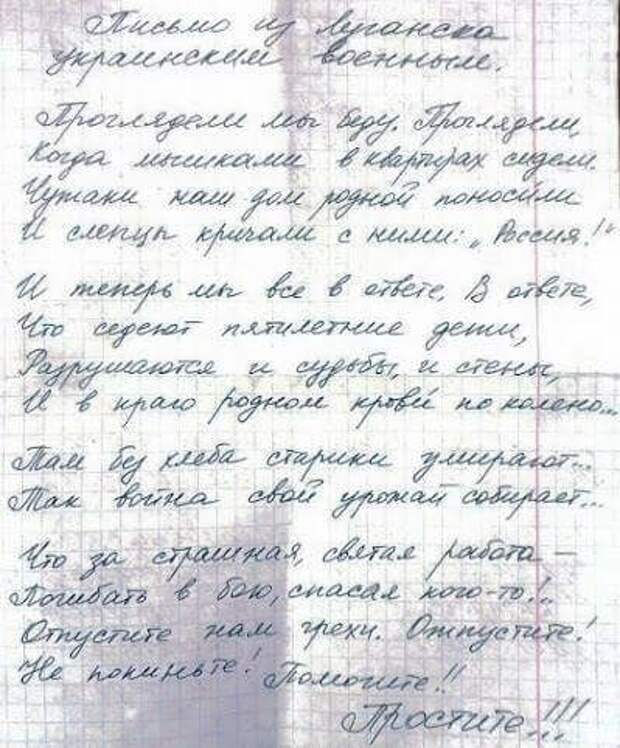 Письмо из Луганска
украинским военным.
Проглядели мы беду. Проглядели,
Когда мышками в квартирах сидели.
Чужаки наш дом родной поносили
И слепцы кричали с ними: „Россия!"
И теперь мы все в ответе. В ответе,
Что седеют пятилетние дети,
Разрушаются и судьбы, и стены,
И в краю родном крови по колено...
Там без хлеба старики умирают...
Так война свой урожай собирает...
Что за страшная, святая работа –
Погибать в бою, спасая кого-то!..
Отпустите нам грехи. Отпустите!
Не покиньте! Помогите!!
Простите!!!